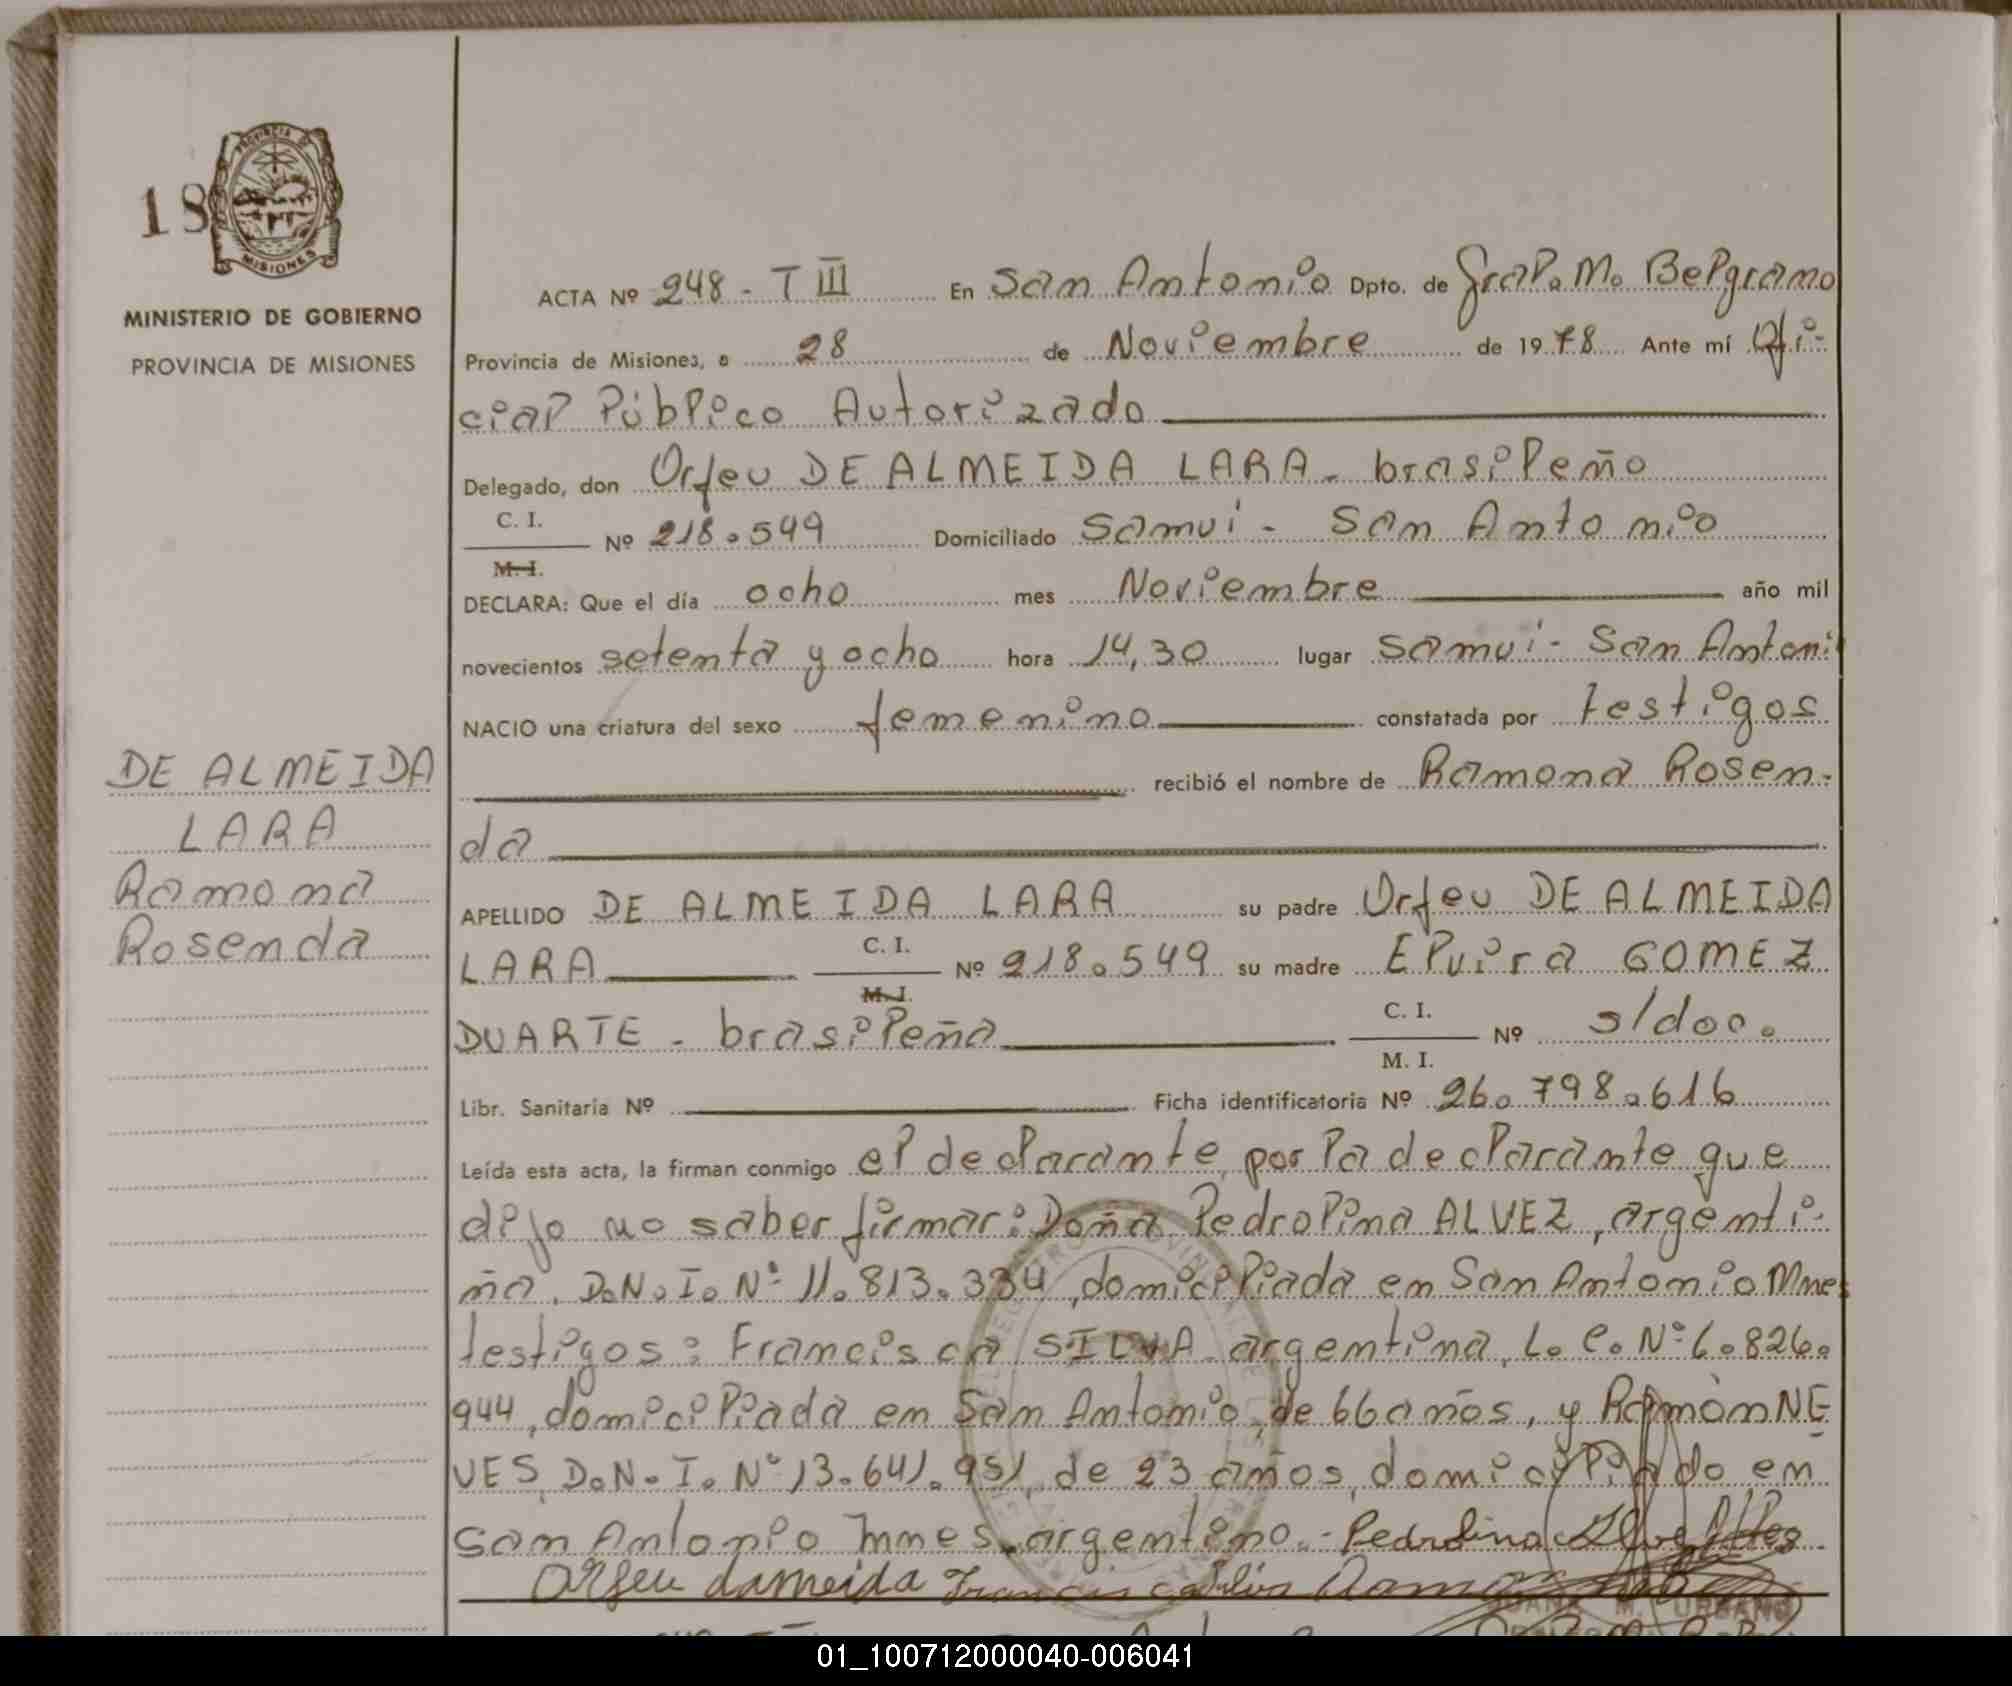 18
PROVINCIA DE
MISIONES
MINISTERIO DE GOBIERNO
PROVINCIA DE MISIONES
ACTA Nº 248 - T III En San Antonio Dpto. de Gral. M. Belgrano
Provincia de Misiones, a 28 de Noviembre de 1978 Ante mí Ofi-
cial Público Autorizado
Delegado, don Orfeu DE ALMEIDA LARA - brasileño
C. I.
Nº 218.549 Domiciliado Samui - San Antonio
M. I.
DECLARA: Que el día ocho mes Noviembre año mil
novecientos setenta y ocho hora 14,30 lugar Samui - San Antoni
NACIO una criatura del sexo femenino constatada por testigos
recibió el nombre de Ramona Rosen-
da
DE ALMEIDA
LARA
Ramona
Rosenda
APELLIDO DE ALMEIDA LARA su padre Orfeu DE ALMEIDA
LARA C. I. Nº 218.549 su madre Elvira GOMEZ
M. I.
DUARTE - brasileña C. I. Nº s/doc.
M. I.
Libr. Sanitaria Nº Ficha identificatoria Nº 26.798.616
Leída esta acta, la firman conmigo el declarante, por la declarante que
dijo no saber firmar: Doña Pedrolina ALVEZ, argenti-
ña, D.N.I. Nº 11.813.334, domiciliada en San Antonio Mnes
testigos: Francisca SILVA argentina, L.C. Nº 6.826.
944, domiciliada en San Antonio, de 66 años, y Ramón NE
VES, D.N.I. Nº 13.641.951, de 23 años, domiciliado en
San Antonio Mnes. argentino.- Pedrolina
Orfeu dameida
JUANA M. URBANO
01_100712000040-006041